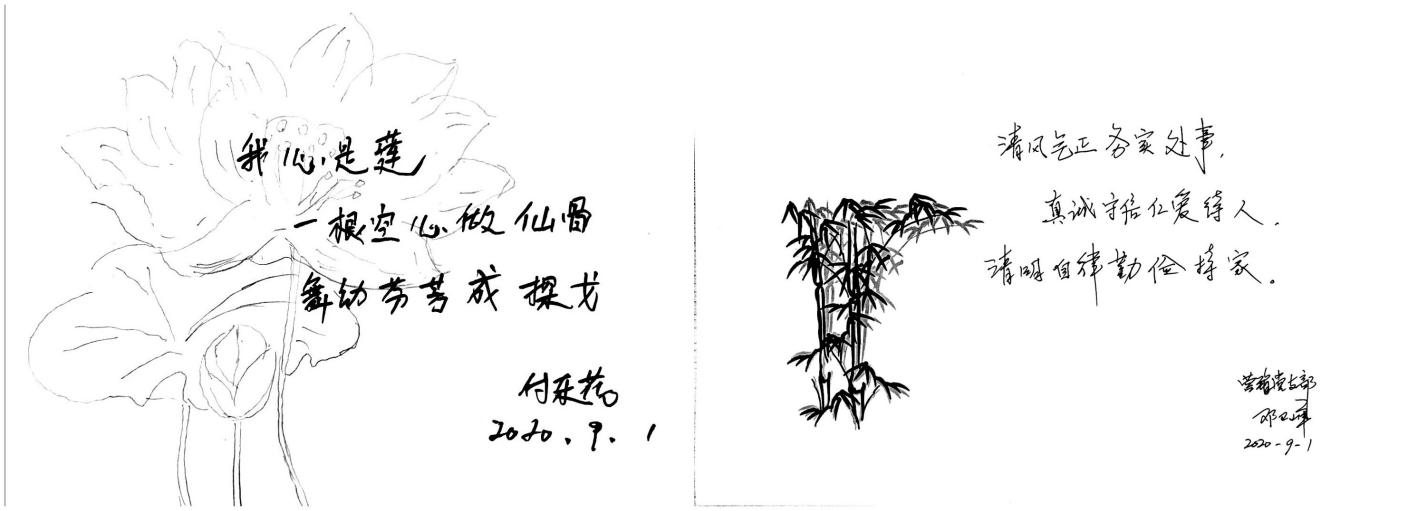 我心是莲
一根空心做仙骨
舞幼芬芳成探戈
2020.9.1
清风气正务实处事,
真诚守信仁爱待人.
清明自律勤俭持家。
党支部
邓卫峰
2020-9-1